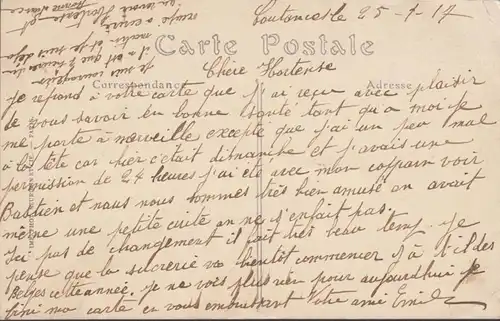 Coutances le 25-1-17
Carte Postale
Correspondance
Adresse
Chère Hortense
Je repond à votre carte que j'ai reçu avec plaisir
de vous savoir en bonne santé tant qu'a moi je
me porte à merveille excepté que j'ai un peu mal
à la tête car hier c'était dimanche et j'avais une
permission de 24 heures j'ai été avec mon copain voir
Bastien et nous nous sommes très bien amusé on avait
même une petite cuite on ne s'enfait pas.
Ici pas de changement il fait très beau temp. je
pense que la sucrerie va bientot commencer
Belges cette année. Je ne vois plus rien pour aujourdhui je
fini ma carte en vous embrassant Votre ami Emile